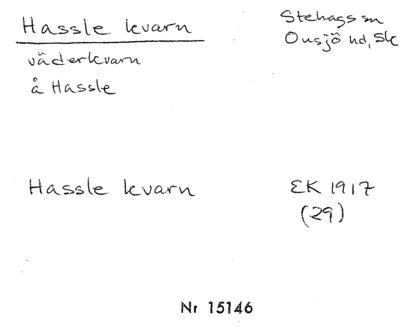 Hassle kvarn
Stehags sn
Onsjö hd, Sk
väderkvarn
å Hassle
Hassle kvarn
EK 1917
(29)
Nr 15146